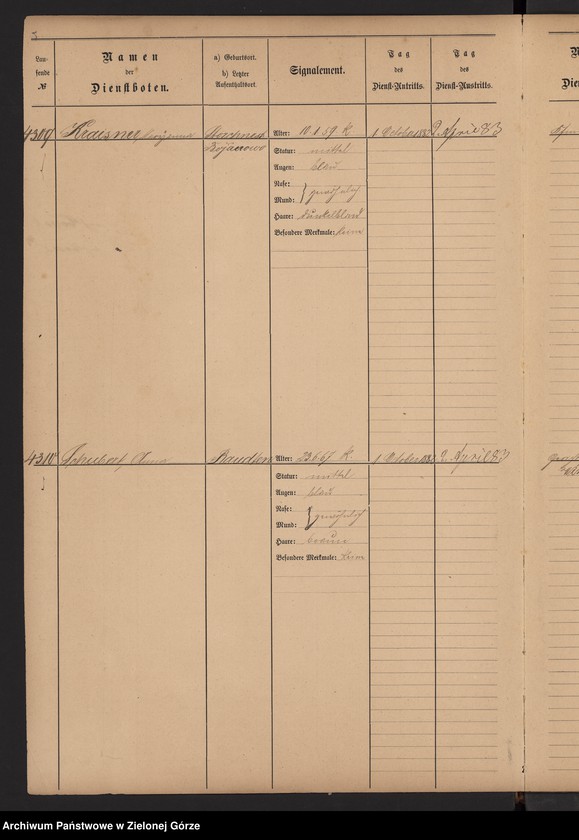 Lau-
fende
№
Namen
der
Dienstboten.
a) Geburtsort.
b) Letzter
Aufenthaltsort.
Signalement.
Tag
des
Dienst-Antritts.
Tag
des
Dienst-Austritts.
4309
Alter: 10.1.59. K.
1 October 1882
2. April 83
Statur: mittel
Augen: blau
Nase:
Mund: gewöhnlich
Haare: dunkelblond
Besondere Merkmale: keine
4310
Schubert, Anna
Raudten
Alter: 23.6.67 K.
1 October 1882
2. April 83
Statur: mittel
Augen: blau
Nase:
Mund: gewöhnlich
Haare: braun
Besondere Merkmale: keine
Archiwum Państwowe w Zielonej Górze